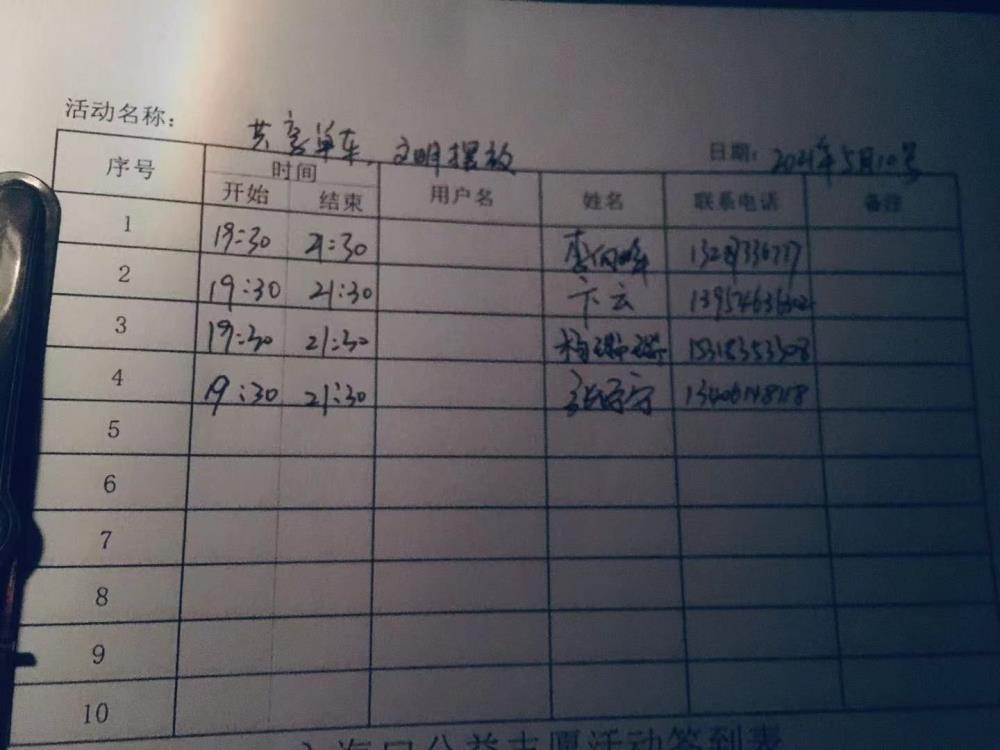 活动名称： 共享单车，文明摆放 日期： 2021年5月10号
序号 时间 用户名 姓名 联系电话 备注
开始 结束
1 19:30 21:30
2 19:30 21:30 卞云
3 19:30 21:30 15318353508
4 19:30 21:30
5
6
7
8
9
10
公益志愿活动签到表